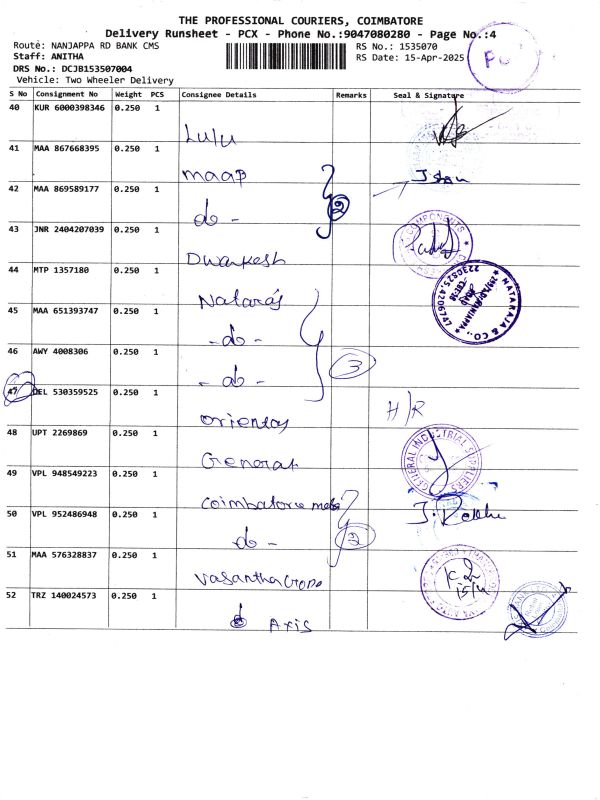 THE PROFESSIONAL COURIERS, COIMBATORE
Delivery Runsheet - PCX - Phone No.:9047080280 - Page No.:4
Route: NANJAPPA RD BANK CMS
RS No.: 1535070
Staff: ANITHA
RS Date: 15-Apr-2025
DRS No.: DCJB153507004
Vehicle: Two Wheeler Delivery
S No Consignment No Weight PCS Consignee Details Remarks Seal & Signature
40 KUR 6000398346 0.250 1
Lulu
41 MAA 867668395 0.250 1
maap
42 MAA 869589177 0.250 1
do - 2
43 JNR 2404207039 0.250 1
Dwarkesh
44 MTP 1357180 0.250 1
Nataraj
45 MAA 651393747 0.250 1
- do -
46 AWY 4008306 0.250 1
- do - 3
47 DEL 530359525 0.250 1
H/R
48 UPT 2269869 0.250 1
General
GENERAL INDUSTRIAL SUPPLIERS
49 VPL 948549223 0.250 1
Coimbatore
50 VPL 952486948 0.250 1
do - 2
51 MAA 576328837 0.250 1
15/4
52 TRZ 140024573 0.250 1
Axis